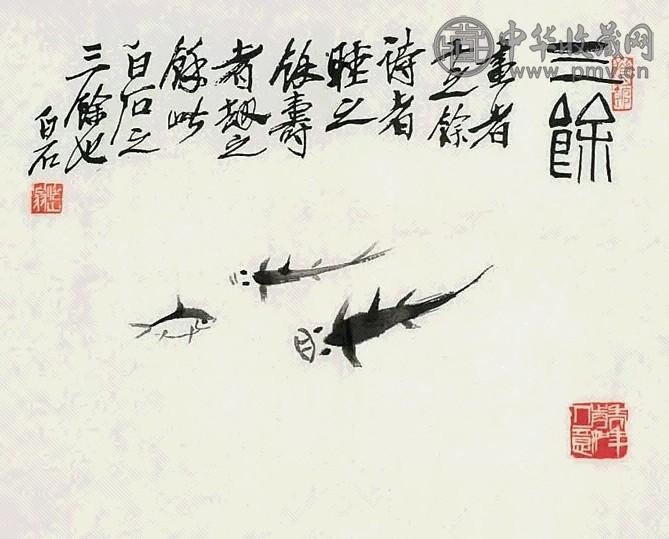 三餘
畫者
工之餘
詩者
睡之
餘壽
者劫之
餘此
白石之
三餘也
白石
中华收藏网
www.pmv.cn